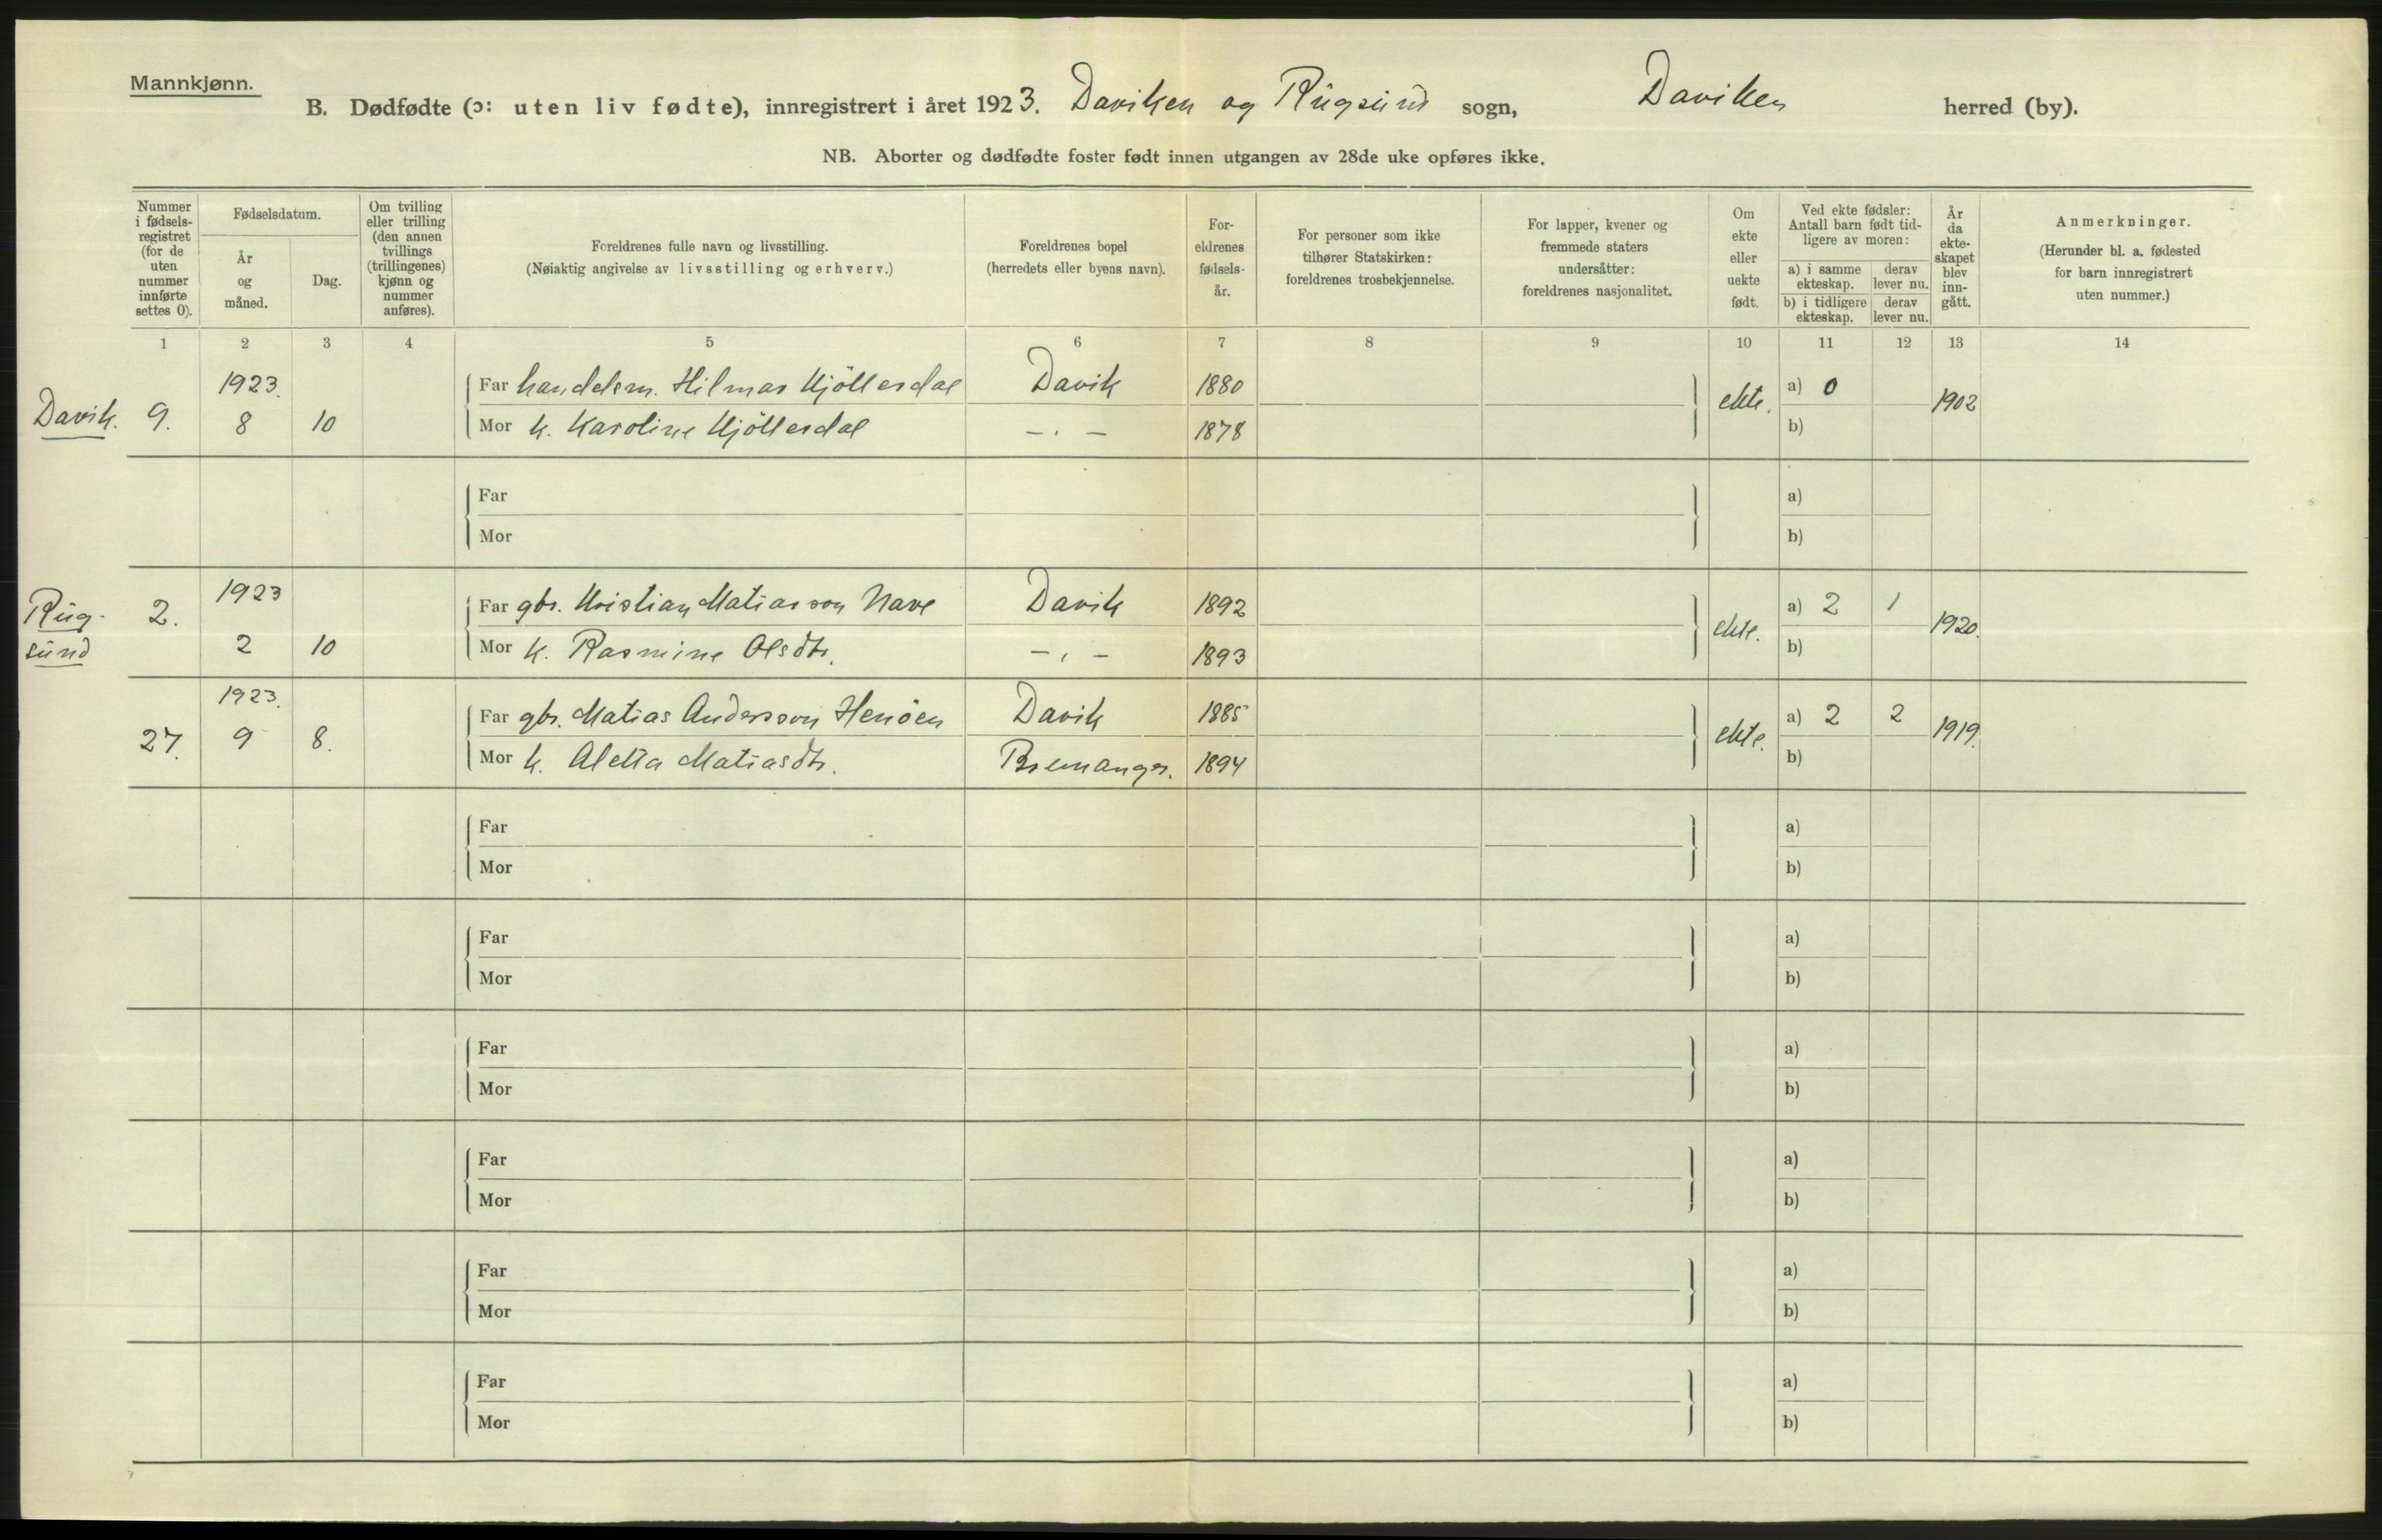 Mannkjønn.
B. Dødfødte (ɔ: uten liv fødte), innregistrert i året 1923. Daviken og Rugsund sogn, Daviken herred (by).
NB. Aborter og dødfødte foster født innen utgangen av 28de uke opføres ikke.
Nummer i fødsels- registret (for de uten nummer innførte settes 0).
Fødselsdatum.
År og måned.
Dag.
Om tvilling eller trilling (den annen tvillings (trillingenes) kjønn og nummer anføres).
Foreldrenes fulle navn og livsstilling.
(Nøiaktig angivelse av livsstilling og erhverv.)
Foreldrenes bopel
(herredets eller byens navn).
For- eldrenes fødsels- år.
For personer som ikke tilhører Statskirken: foreldrenes trosbekjennelse.
For lapper, kvener og fremmede staters undersåtter: foreldrenes nasjonalitet.
Om ekte eller uekte født.
Ved ekte fødsler: Antall barn født tid- ligere av moren:
a) i samme ekteskap.
derav lever nu.
b) i tidligere ekteskap.
derav lever nu.
År da ekte- skapet blev inn- gått.
Anmerkninger.
(Herunder bl. a. fødested for barn innregistrert uten nummer.)
1 2 3 4 5 6 7 8 9 10 11 12 13 14
1923. Far handelsm. Hilmar Kjöllesdal Davik 1880 a) 0
Davik. 9. 8 10 Mor k. Karoline Kjöllesdal – . – 1878 ekte. b) 1902
Far a)
Mor b)
Rug- 2. 1923 Far gbr. Kristian Matiasson Nave Davik 1892 a) 2 1
sund 2 10 Mor k. Rasmine Olsdtr. – , – 1893 ekte. b) 1920.
1923. Far gbr. Matias Andersson Henöen Davik 1885 a) 2 2
27. 9 8. Mor k. Aletta Matiasdtr. Bremanger. 1894 ekte. b) 1919.
Far a)
Mor b)
Far a)
Mor b)
Far a)
Mor b)
Far a)
Mor b)
Far a)
Mor b)
Far a)
Mor b)